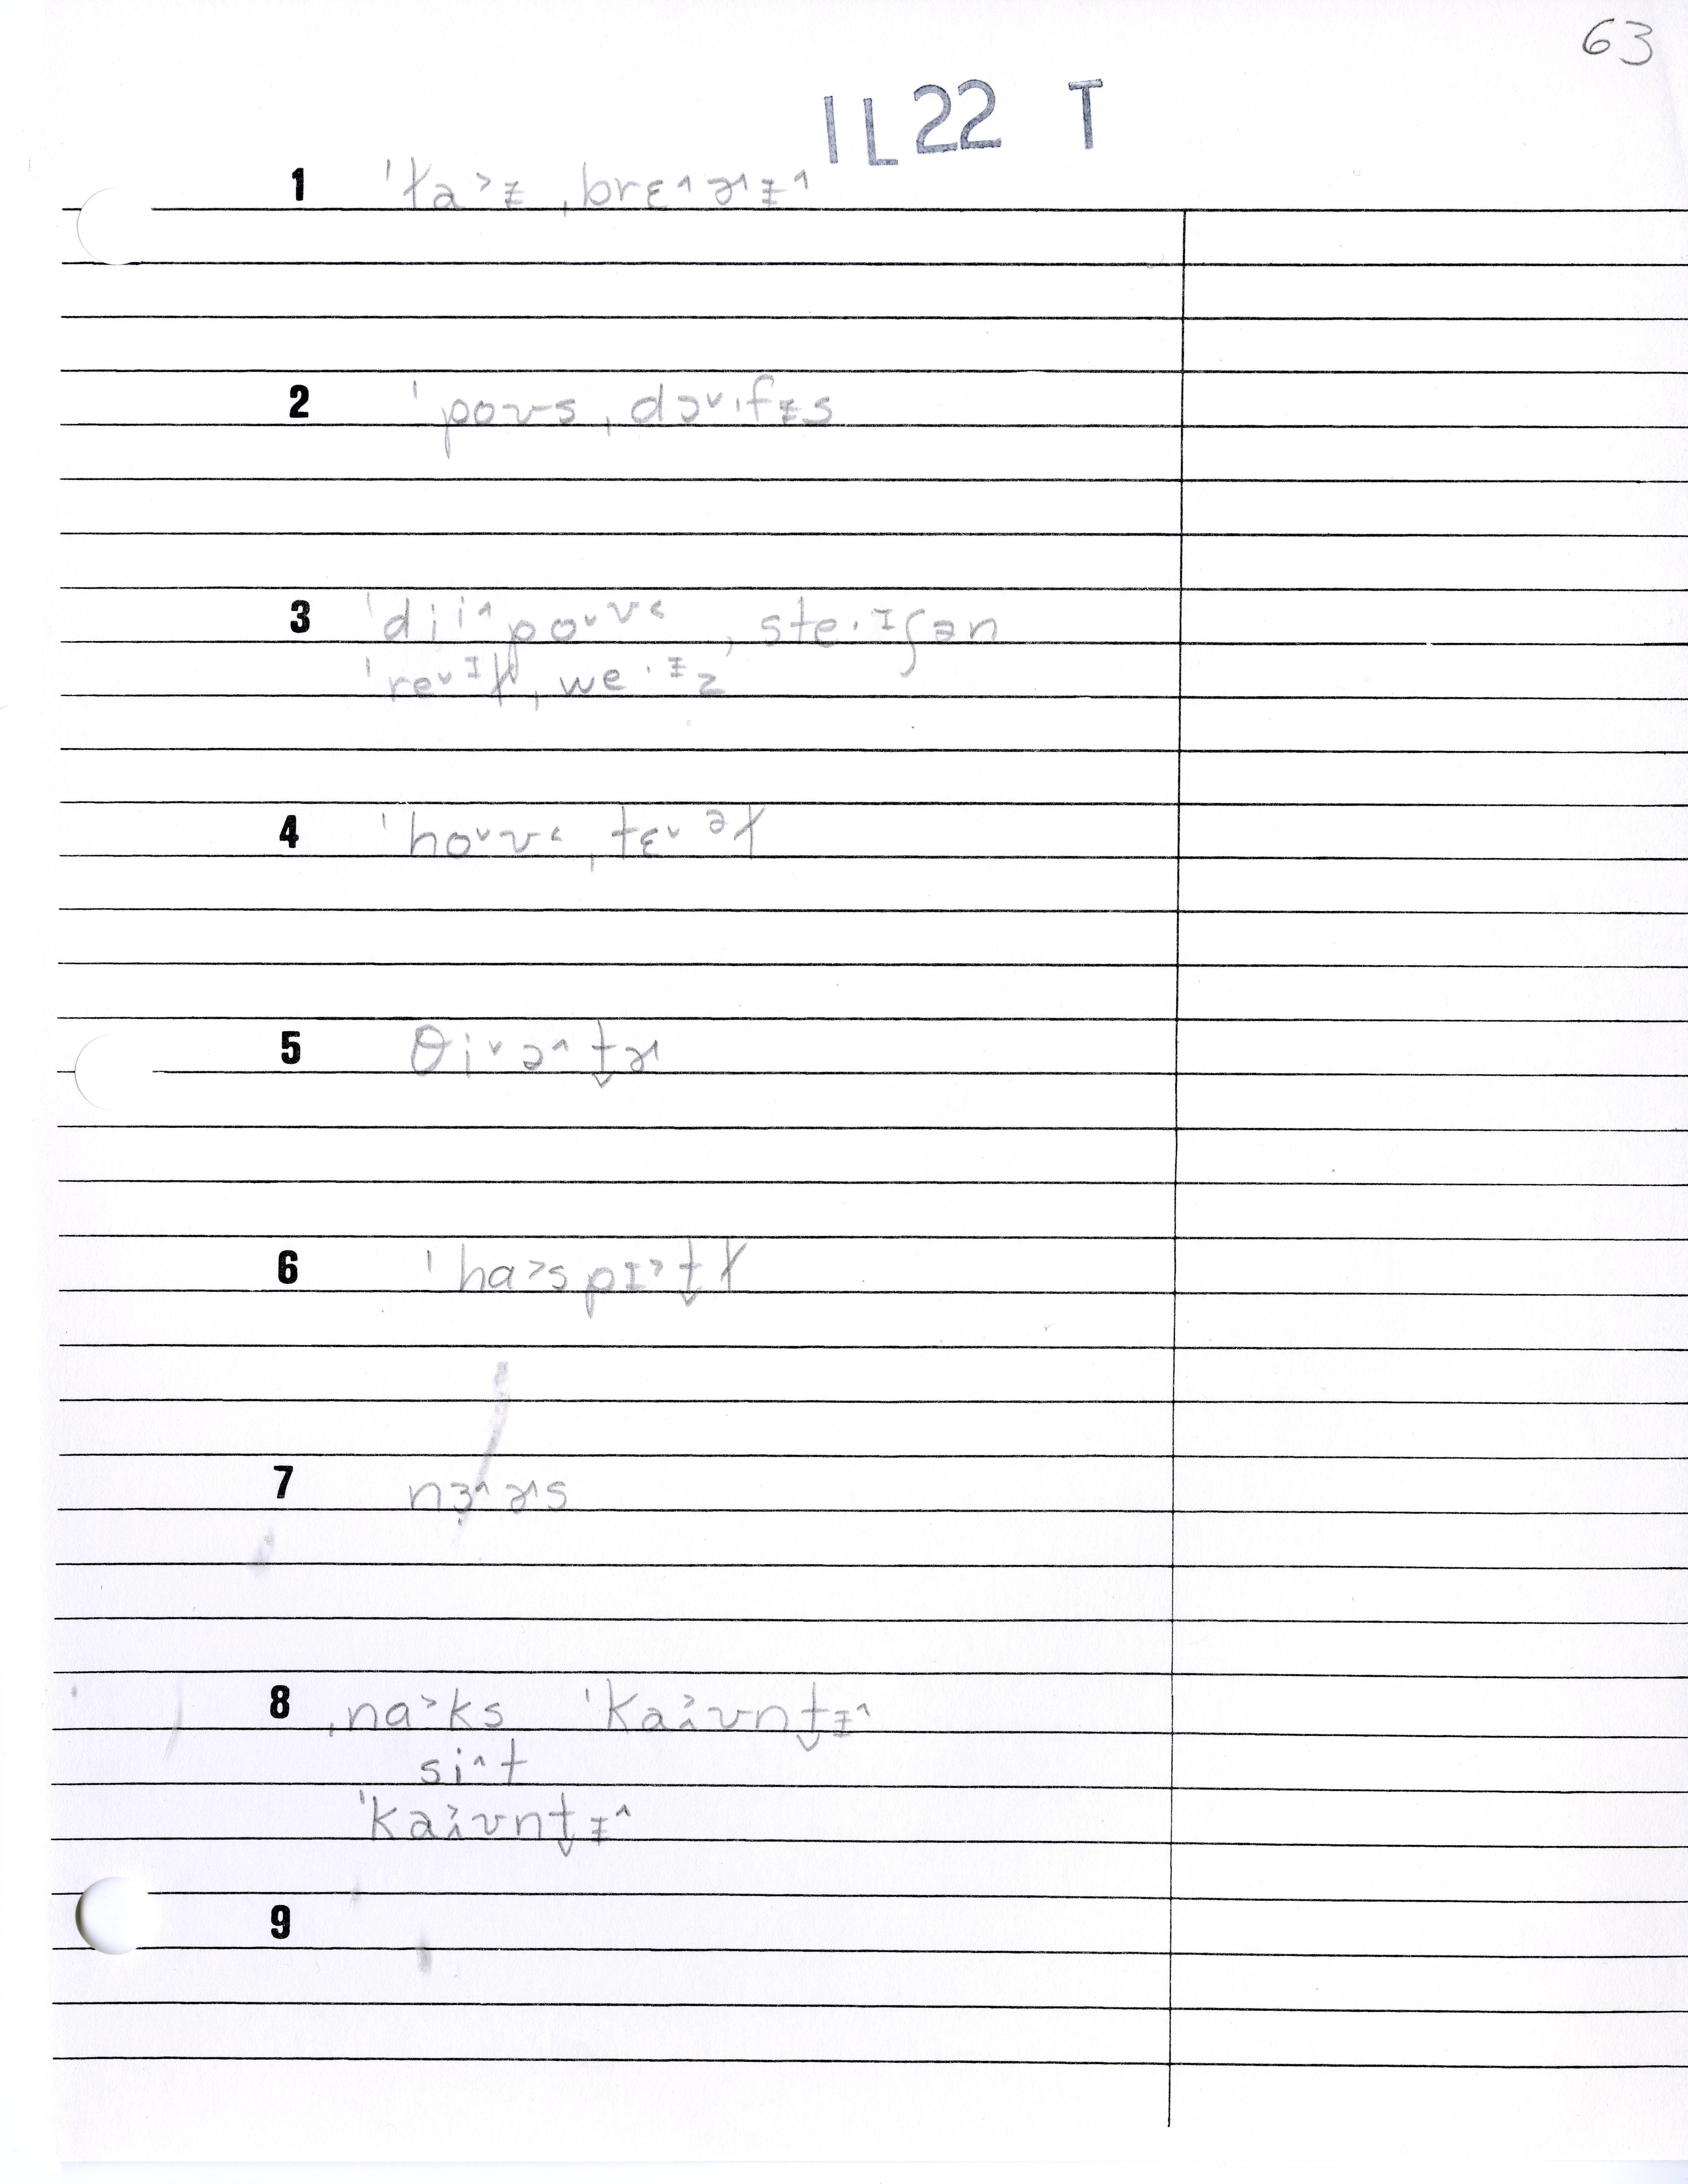 63
IL22 T
1 ˈɫa˃ᵻ ˌbrɛ˄ɚᵻ˄
2 ˈpoʊs ˌdɔ˅ɪfᵻs
3 ˈdiˌi˄poʊ˅˂ ˌste·ɪʃən
ˈre˅ɪɫ ˌwe·ᵻz
4 ˈho˅ʊ˂ ˌtɛ˅əɫ
5 θi˅ə˄t̬ɚ
6 ˈha˃spɪ˃t̬ɫ
7 nɜ̣˄ɚs
8 ˌna˃ks ˈka˃˄ʊnt̬ᵻ˄
si˄t
ˈka˃˄ʊnt̬ᵻ˄
9